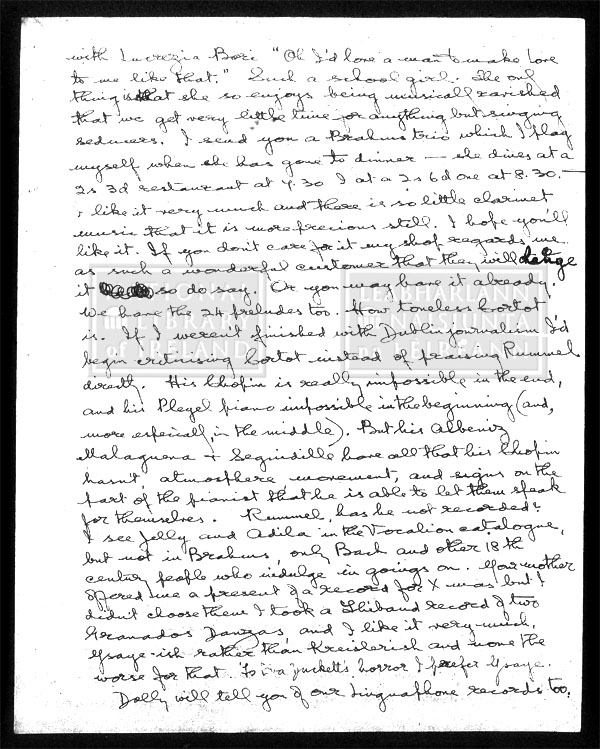 with Lucrezia Bori "Oh I'd love a man to make love
to me like that." Such a school girl. The only
thing is that she so enjoys being musically ravished
that we get very little time for anything but singing
seducers. I send you a Brahms trio which I play
myself when she has gone to dinner — she dines at a
2s 3d restaurant at 7.30 I at a 2s 6d one at 8.30. —
I like it very much and there is so little clarinet
music that it is more precious still. I hope you'll
like it. If you don't care for it my shop regards me
as such a wonderful customer that they will change
it so do say. Or you may have it already.
We have the 24 preludes too. How toneless Cortot
is. If I weren't finished with Dublin journalism I'd
begin criticising Cortot instead of praising Rummel
directly. His Chopin is really impossible in the end,
and his Pleyel piano impossible in the beginning (and,
more especially, in the middle). But his Albeniz
Malaguena & Seguidille have all that his Chopin
hasn't, atmosphere movement, and signs on the
part of the pianist that he is able to let them speak
for themselves. Rummel, has he not recorded?
I see Jelly and Adila in the Vocalion catalogue,
but not in Brahms, only Bach and other 18th
century people who indulge in goings on. Your mother
offered me a present of a record for X mas but I
didn't choose them I took a Thibaud record of two
Granados Danzas, and I like it very much,
Ysaye-ish rather than Kreislerish and none the
worse for that. To puckett's horror I prefer Ysaye.
Dolly will tell you of our Linguaphone records too.
NATIONAL
LIBRARY
of IRELAND
LEABHARLANN
NÁISIÚNTA
na hÉIREANN